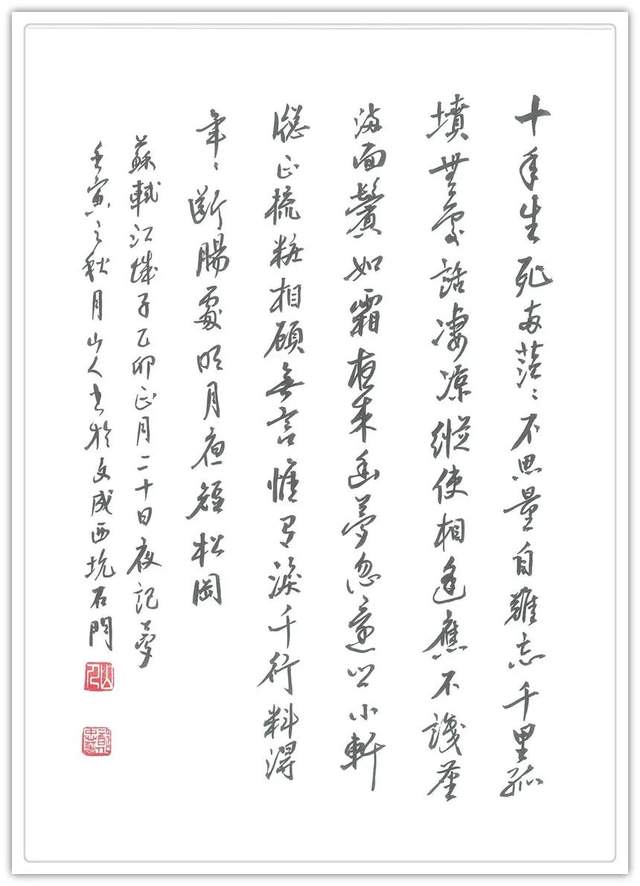 十年生死两茫〻不思量自難忘千里孤
墳無處話凄凉縱使相逢應不識塵
滿面鬢如霜夜来幽夢忽還鄉小軒
窗正梳粧相顧無言惟有淚千行料得
年〻断腸處明月夜短松岡
蘇軾江城子乙卯正月二十日夜記夢
壬寅之秋月山人書於文成西坑石門